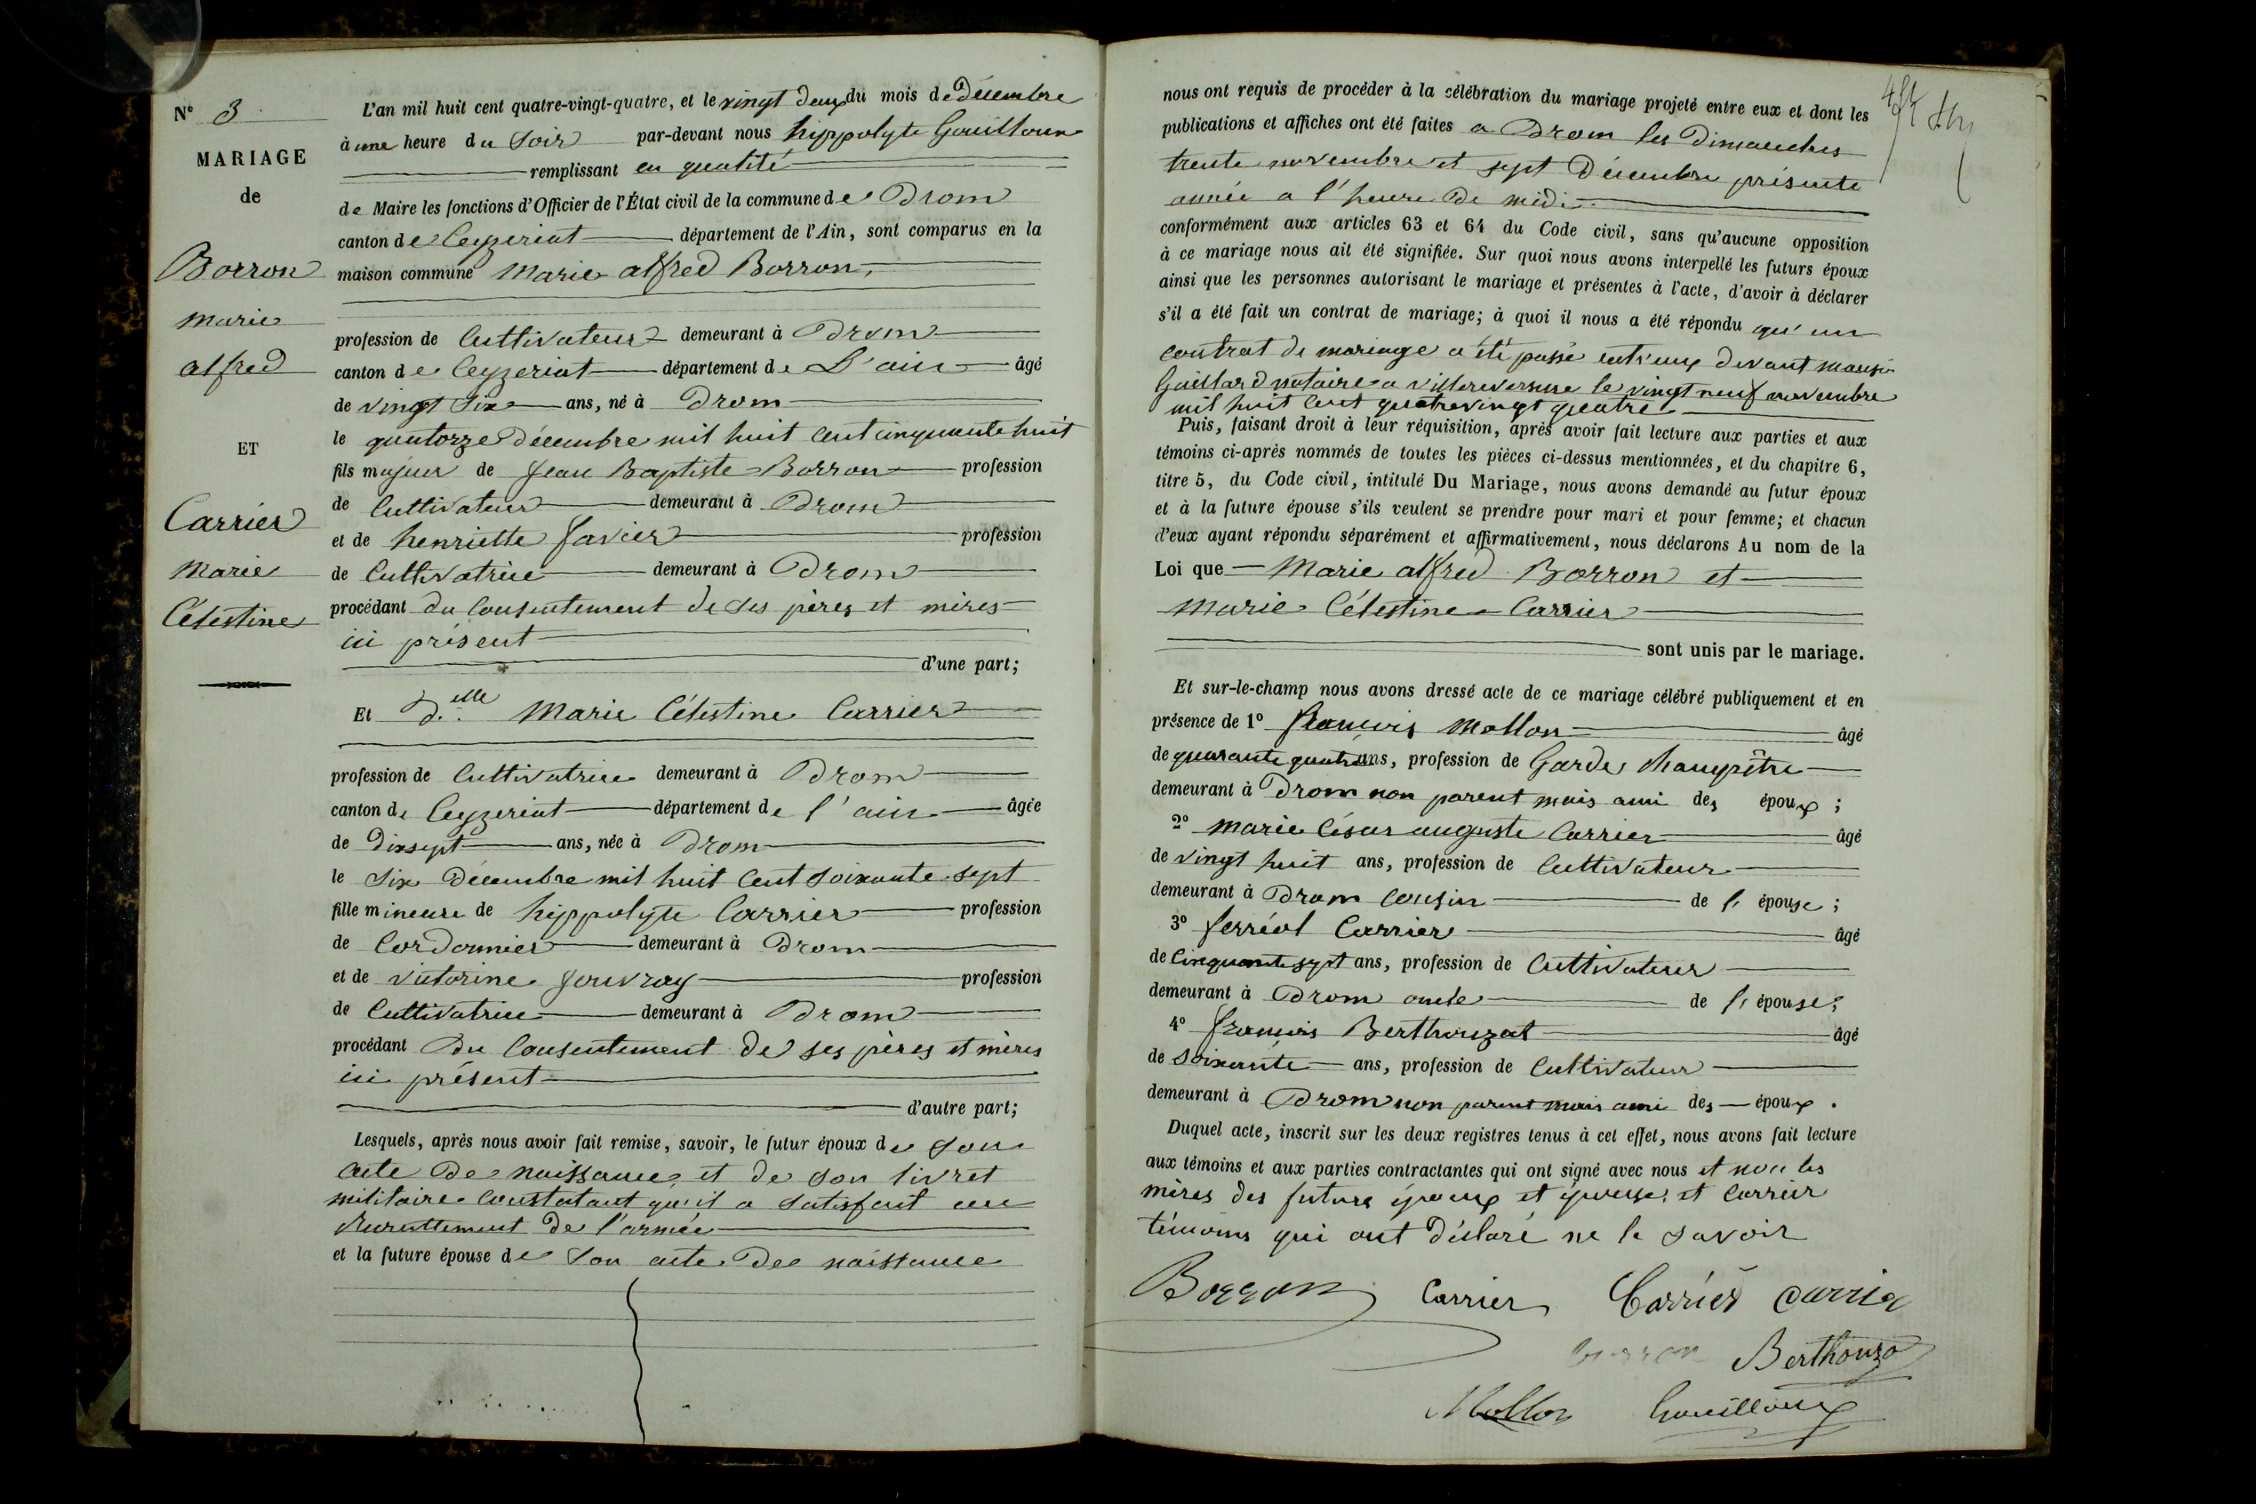 N° 3
MARIAGE
de
Borron
Marie
alfred
ET
Carrier
Marie
Célestine
L'an mil huit cent quatre-vingt-quatre, et le vingt deux du mois de Décembre
à une heure du Soir par-devant nous hippolyte Gouilloux
remplissant en qualité
de Maire les fonctions d'Officier de l'État civil de la commune de Drom
canton de Ceyzeriat département de l'Ain, sont comparus en la
maison commune Marie alfred Borron,
profession de Cultivateur demeurant à Drom
canton de Ceyzeriat département de L'ain âgé
de vingt Six ans, né à Drom
le quatorze Décembre mil huit cent cinquante huit
fils majeur de Jean Baptiste Borron profession
de Cultivateur demeurant à Drom
et de henriette Favier profession
de Cultivatrice demeurant à Drom
procédant du Consentement de ses pères et mères
ici présent
d'une part;
Et D.elle Marie Célestine Carrier
profession de Cultivatrice demeurant à Drom
canton de Ceyzeriat département de l'ain âgée
de Dixsept ans, née à Drom
le Six Décembre mil huit Cent Soixante-sept
fille mineure de hippolyte Carrier profession
de Cordonnier demeurant à Drom
et de victorine Jouvray profession
de Cultivatrice demeurant à Drom
procédant Du Consentement De ses pères et mères
ici présent
d'autre part;
Lesquels, après nous avoir fait remise, savoir, le futur époux de son
acte De naissance, et de son livret
militaire Constatant qu'il a satisfait au
Recruttement De l'armée
et la future épouse de Son acte De naissance
nous ont requis de procéder à la célébration du mariage projeté entre eux et dont les
publications et affiches ont été faites a Drom les Dimanches
trente novembre et sept Décembre présente
année a l'heure De midi
conformément aux articles 63 et 64 du Code civil, sans qu'aucune opposition
à ce mariage nous ait été signifiée. Sur quoi nous avons interpellé les futurs époux
ainsi que les personnes autorisant le mariage et présentes à l'acte, d'avoir à déclarer
s'il a été fait un contrat de mariage; à quoi il nous a été répondu qu'un
Contrat de mariage a été passé entr'eux devant
Gaillard notaire a villereversure le vingt neuf novembre
mil huit Cent quatrevingt quatre
Puis, faisant droit à leur réquisition, après avoir fait lecture aux parties et aux
témoins ci-après nommés de toutes les pièces ci-dessus mentionnées, et du chapitre 6,
titre 5, du Code civil, intitulé Du Mariage, nous avons demandé au futur époux
et à la future épouse s'ils veulent se prendre pour mari et pour femme; et chacun
d'eux ayant répondu séparément et affirmativement, nous déclarons Au nom de la
Loi que Marie alfred Borron et
Marie Célestine Carrier
sont unis par le mariage.
Et sur-le-champ nous avons dressé acte de ce mariage célébré publiquement et en
présence de 1° francois Mollon âgé
de quarante quatre ans, profession de Garde Champêtre
demeurant à Drom non parent mais ami des époux ;
2° Marie César auguste Carrier âgé
de vingt huit ans, profession de Cultivateur
demeurant à Drom Cousin de l' épouse ;
3° ferréol Carrier âgé
de Cinquante sept ans, profession de Cultivateur
demeurant à Drom oncle de l' épouse;
4° francois Berthouzat âgé
de Soixante ans, profession de Cultivateur
demeurant à Drom non parent mais ami des époux .
Duquel acte, inscrit sur les deux registres tenus à cet effet, nous avons fait lecture
aux témoins et aux parties contractantes qui ont signé avec nous et non les
mères des futurs époux et épouse, et Carrier
témoins qui ont Déclaré ne le savoir
Borron Carrier Carrier Carrier
Borron Berthouzo
Mollon Gouilloux